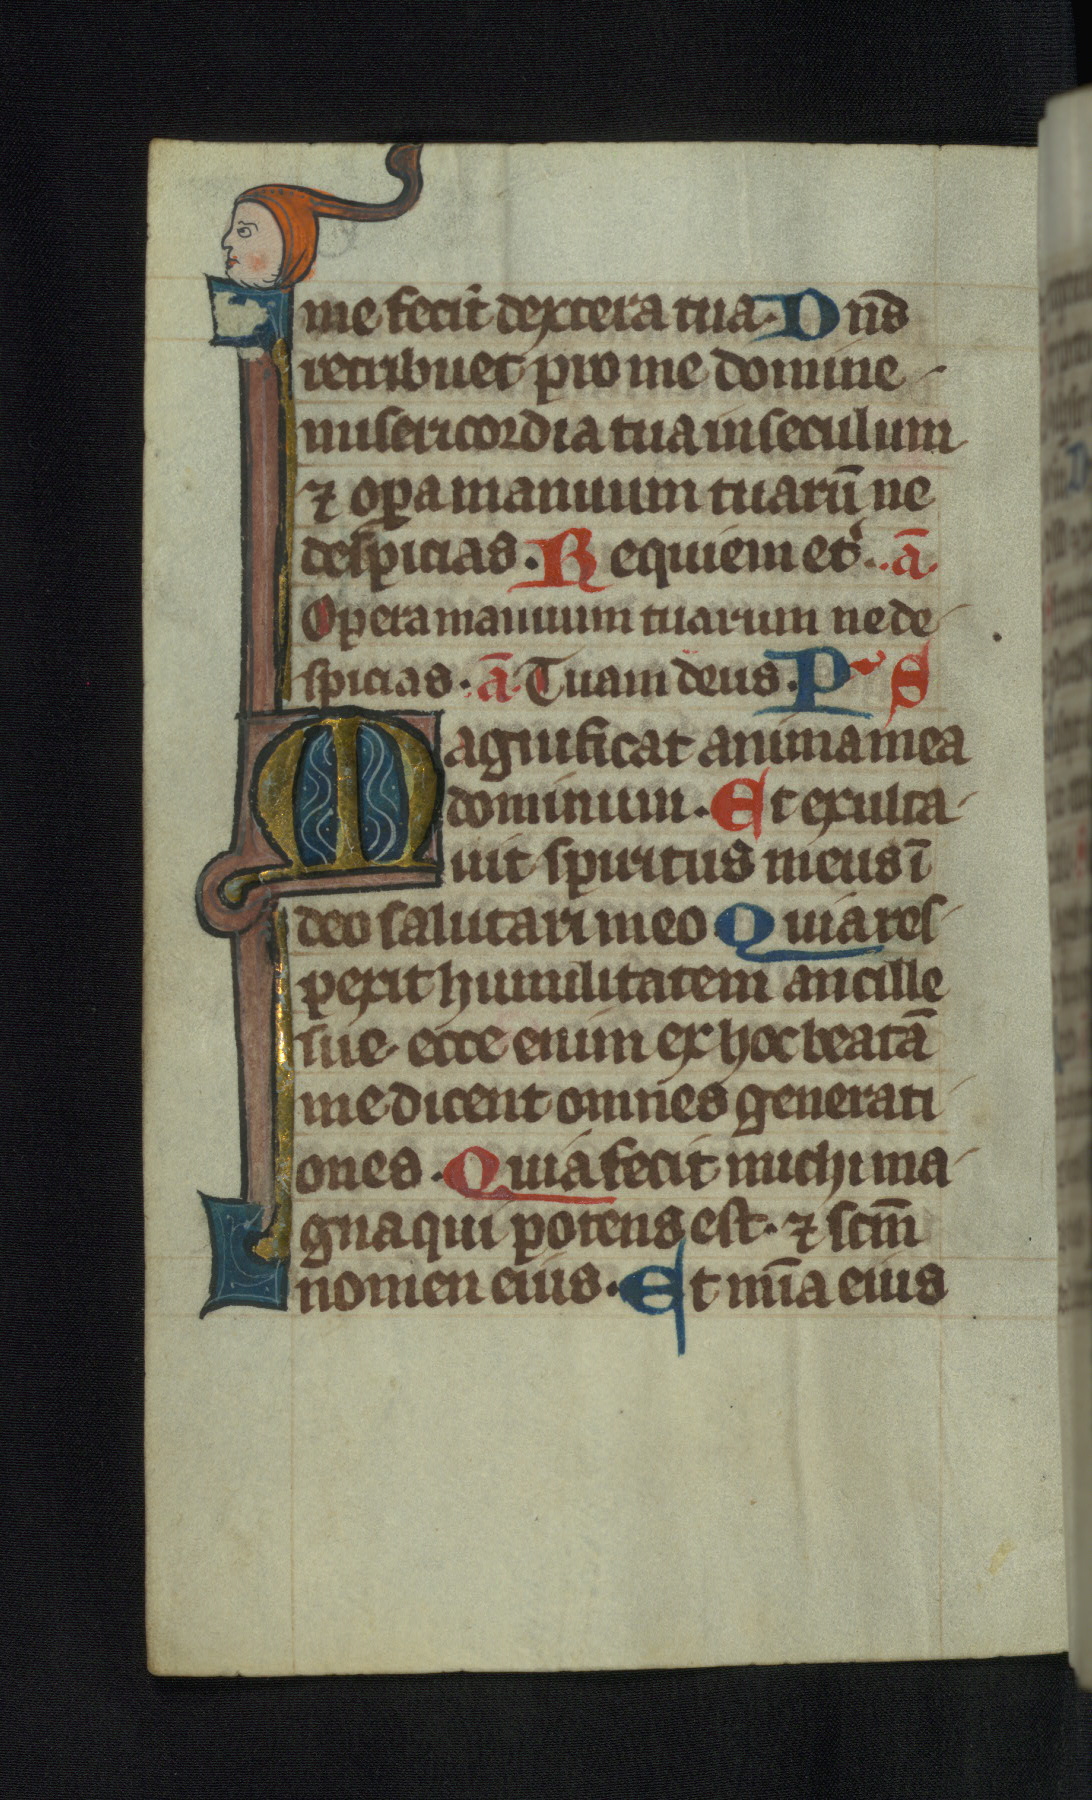 me fecit dextera tua. Dn̄s
retribuet pro me domine
misericordia tua in seculum
⁊ oꝑa manuum tuarū ne
despicias. Requiem et̾. ā.
Opera manuum tuarum ne de-
spicias. ā. Tuam deus. P S
Magnificat anima mea
dominum. Et exulta-
uit spiritus meus ī
deo salutari meo Quia res-
pexit humilitatem ancille
sue. ecce enim ex hoc beatā
me dicent omnes generati-
ones. Quia fecit michi ma-
gna qui potens est. ⁊ scm̄
nomen eius. Et mīa eius